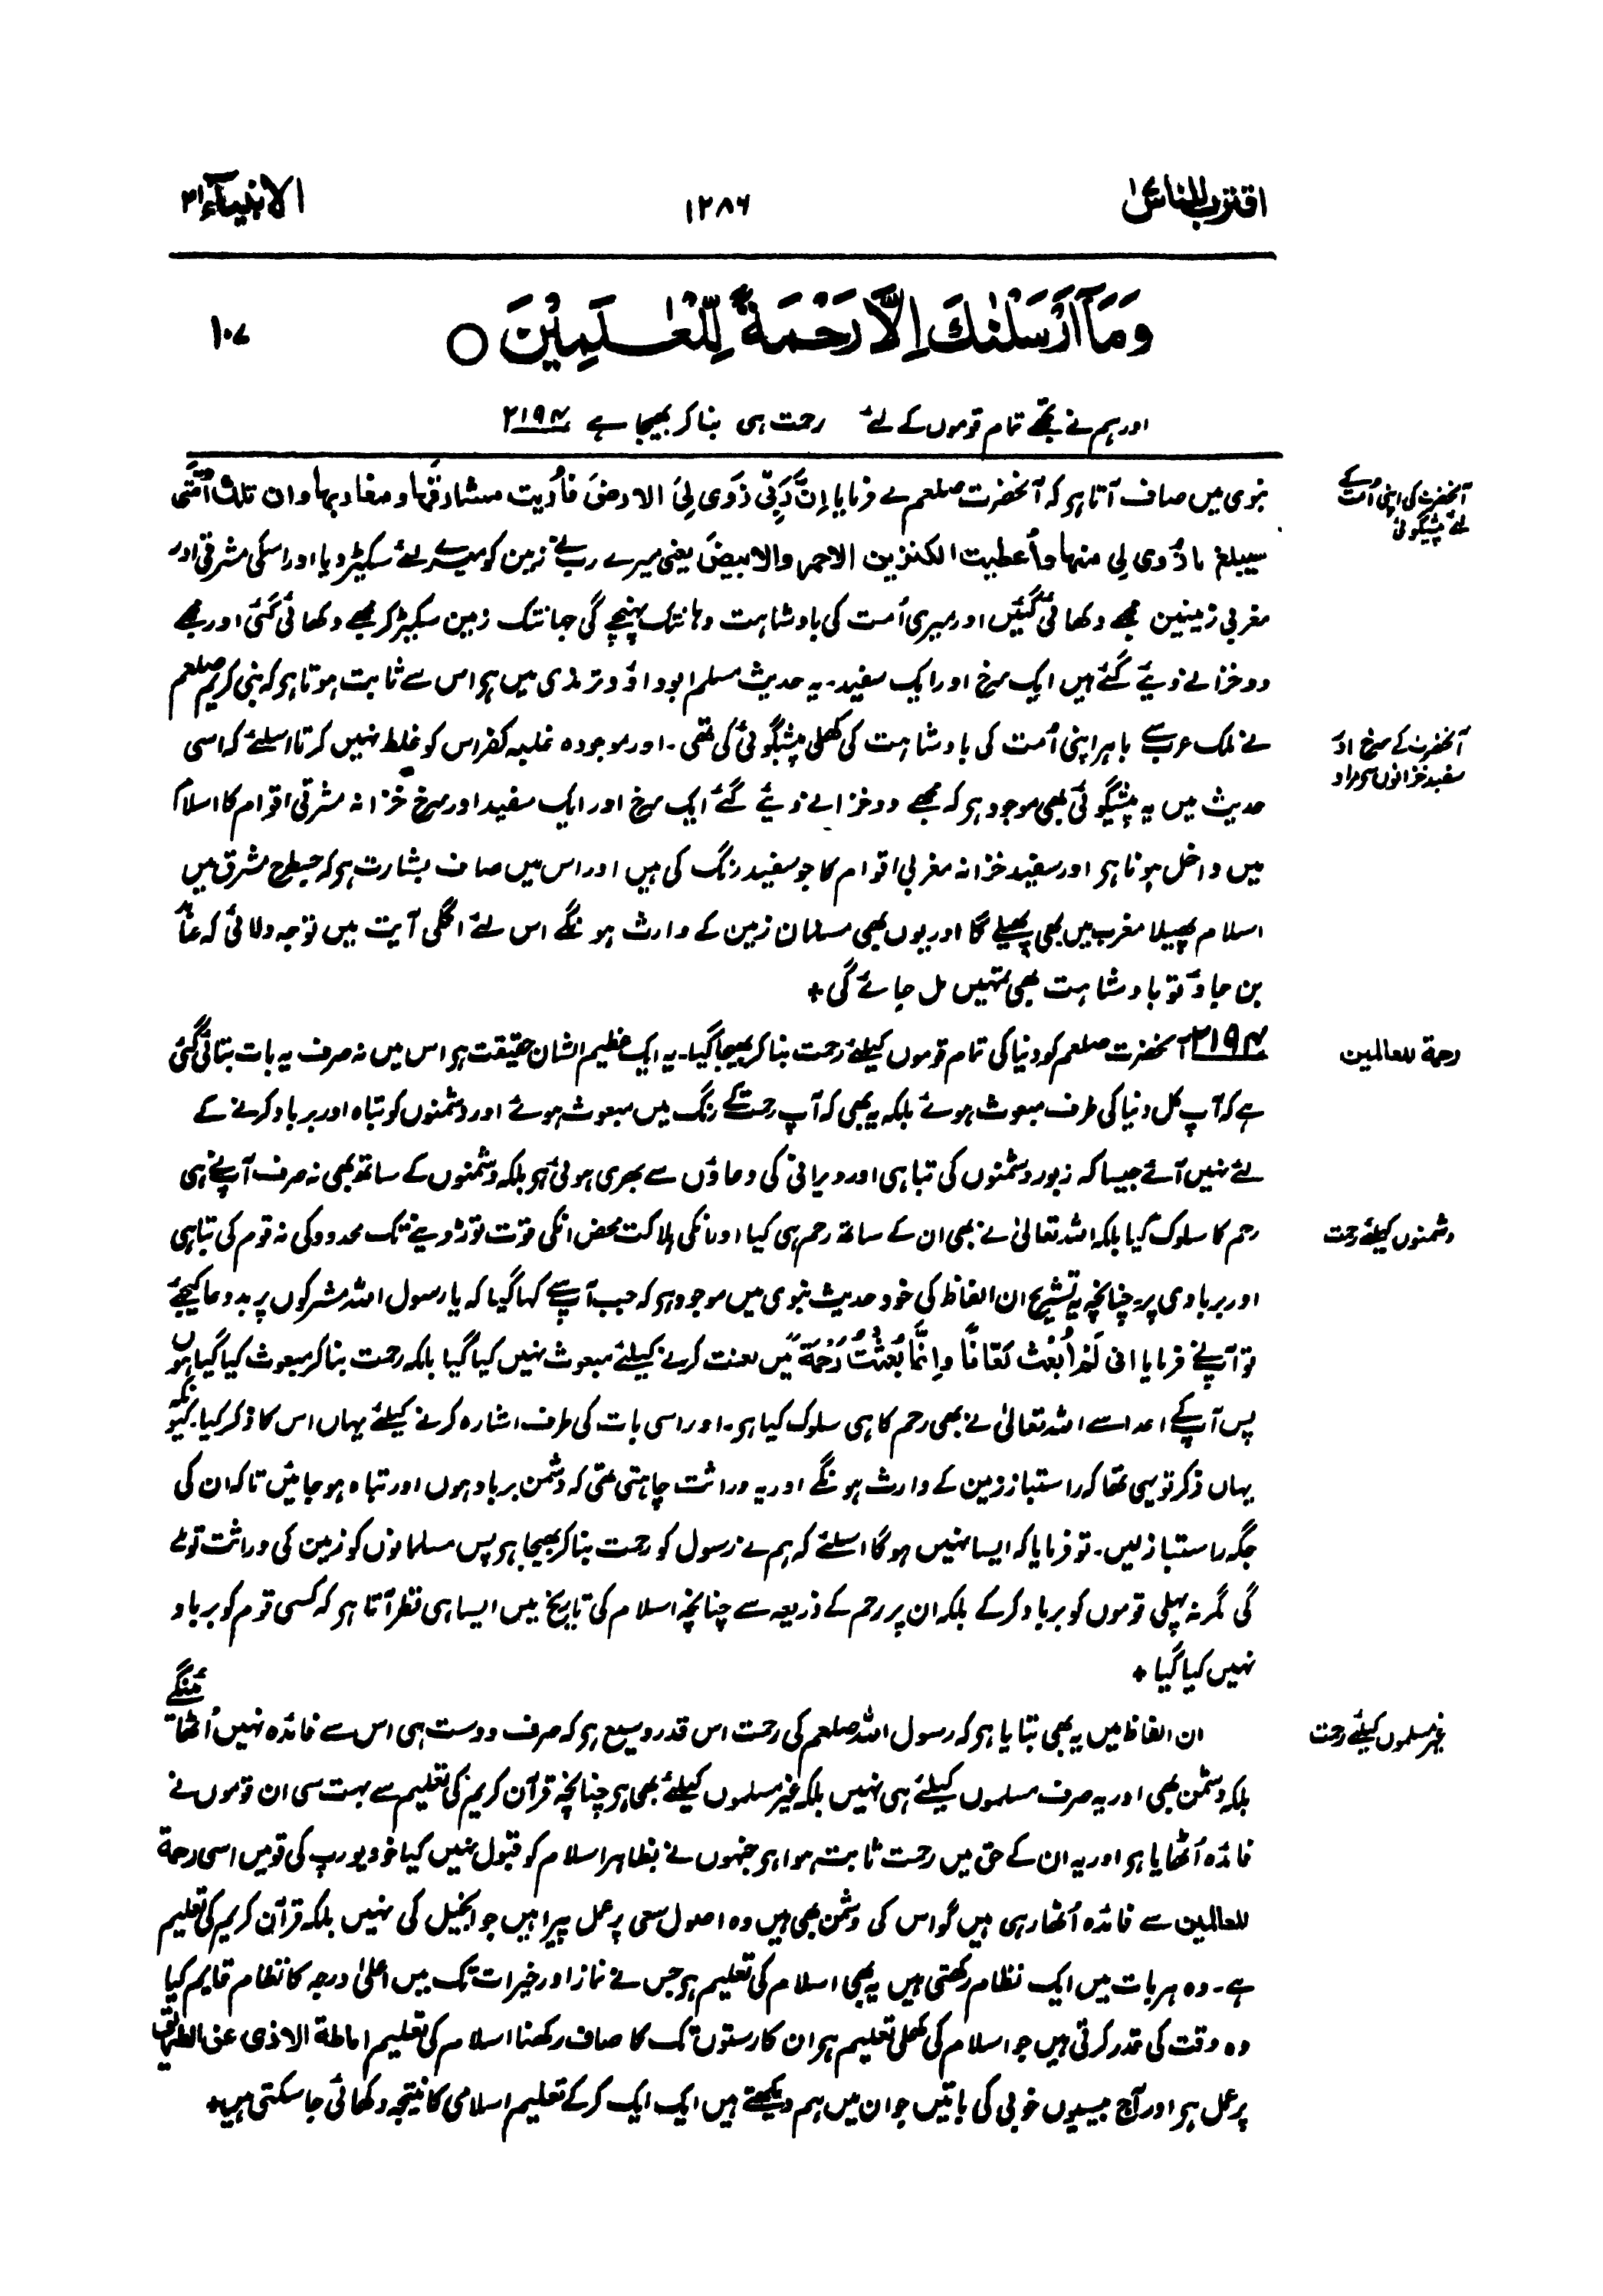 اقترب للناس ۱۷
۱۲۸۶
الانبیآء ۲۱
وَمَآ اَرْسَلْنٰكَ اِلَّا رَحْمَةً لِّلْعٰلَمِیْنَ ○
۱۰۷
اور ہم نے تجھے تمام قوموں کے لئے رحمت ہی بنا کر بھیجا ہے ۲۱۹۴
نبوی میں صاف آتا ہر کہ آنحضرت صلعم نے فرمایا اِنَّ رَبِّی زَوَی لِیَ الارضَ فأریت مشارقَہا ومغاربہا وان تلك اُمَّتی
آنحضرت کی اپنی اُمت کے
لئے پیشگوئی
سیبلغ ما زُوی لی منہا واُعطیت الکنزین الاحمر والابیضَ یعنی میرے رب نے زمین کو میرے لئے سکیڑ دیا اور اسکی مشرقی اور
مغربی زمینین مجھے دکھائی گئیں اور میری اُمت کی بادشاہت وہانتک پہنچے گی جہانتک زمین سکیڑ کر مجھے دکھائی گئی اور مجھے
دو خزانے دیئے گئے ہیں ایک سرخ اور ایک سفید۔ یہ حدیث مسلم ابو داؤد ترمذی میں ہر اس سے ثابت ہوتا ہر کہ نبی کریم صلعم
نے ملک عرب سے باہر اپنی اُمت کی بادشاہت کی کھلی پیشگوئی کی تھی۔ اور موجودہ غلبہ کفر اس کو غلط نہیں کرتا اسلئے کہ اسی
آنحضرت کے سرخ اور
سفید خزانوں سے مراد
حدیث میں یہ پیشگوئی بھی موجود ہر کہ مجھے دو خزانے دیئے گئے ایک سرخ اور ایک سفید اور سرخ خزانہ مشرقی اقوام کا اسلام
میں داخل ہونا ہر اور سفید خزانہ مغربی اقوام کا جو سفید رنگ کی ہیں اور اس میں صاف بشارت ہر کہ جسطرح مشرق میں
اسلام پھیلا مغرب میں بھی پھیلے گا اور یوں بھی مسلمان زمین کے وارث ہونگے اس لئے اگلی آیت میں توجہ دلائی کہ عابد
بن جاؤ تو بادشاہت بھی تمہیں مل جائے گی +
۲۱۹۴ آنحضرت صلعم کو دنیا کی تمام قوموں کیلئے رحمت بنا کر بھیجا گیا۔ یہ ایک عظیم الشان حقیقت ہر اس میں نہ صرف یہ بات بتائی گئی
رحمة للعالمین
ہے کہ آپ کل دنیا کی طرف مبعوث ہوئے بلکہ یہ بھی کہ آپ رحمت کے رنگ میں مبعوث ہوئے اور دشمنوں کو تباہ اور برباد کرنے کے
لئے نہیں آئے جیسا کہ زبور دشمنوں کی تباہی اور ویرانی کی دعاؤں سے بھری ہوئی ہر بلکہ دشمنوں کے ساتھ بھی نہ صرف آپنے ہی
رحم کا سلوک کیا بلکہ اللہ تعالیٰ نے بھی ان کے ساتھ رحم ہی کیا اور انکی ہلاکت محض انکی قوت توڑ دینے تک محدود کی نہ قوم کی تباہی
دشمنوں کیلئے رحمت
اور بربادی پر۔ چنانچہ یہ تشریح ان الفاظ کی خود حدیث نبوی میں موجود ہر کہ جب آپ سے کہا گیا کہ یا رسول اللہ مشرکوں پر بد دعا کیجئے
تو آپنے فرمایا انی لَمْ اُبْعَث لعّانًا وانَّمَا بُعِثْتُ رَحْمَةً میں لعنت کرنے کیلئے مبعوث نہیں کیا گیا بلکہ رحمت بنا کر مبعوث کیا گیا ہوں
پس آپ کے اعدا سے اللہ تعالیٰ نے بھی رحم کا ہی سلوک کیا ہر۔ اور اسی بات کی طرف اشارہ کرنے کیلئے یہاں اس کا ذکر کیا۔ کیونکہ
یہاں ذکر تو یہی تھا کہ راستباز زمین کے وارث ہونگے اور یہ وراثت چاہتی تھی کہ دشمن برباد ہوں اور تباہ ہو جائیں تاکہ ان کی
جگہ راستباز لیں۔ تو فرمایا کہ ایسا نہیں ہوگا اسلئے کہ ہم نے رسول کو رحمت بنا کر بھیجا ہر پس مسلمانوں کو زمین کی وراثت تو ملے
گی مگر نہ پہلی قوموں کو برباد کر کے بلکہ ان پر رحم کے ذریعہ سے چنانچہ اسلام کی تاریخ میں ایسا ہی نظر آتا ہر کہ کسی قوم کو برباد
نہیں کیا گیا +
ان الفاظ میں یہ بھی بتایا ہر کہ رسول اللہ صلعم کی رحمت اس قدر وسیع ہر کہ صرف دوست ہی اس سے فائدہ نہیں اُٹھائینگے
غیر مسلموں کیلئے رحمت
بلکہ دشمن بھی اور یہ صرف مسلموں کیلئے ہی نہیں بلکہ غیر مسلموں کیلئے بھی ہر چنانچہ قرآن کریم کی تعلیم سے بہت سی ان قوموں نے
فائدہ اُٹھایا ہر اور یہ ان کے حق میں رحمت ثابت ہوا ہر جنہوں نے بظاہر اسلام کو قبول نہیں کیا خود یورپ کی قومیں اسی رحمة
للعالمین سے فائدہ اُٹھا رہی ہیں گو اس کی دشمن بھی ہیں وہ اصول سعی پر عمل پیرا ہیں جو انجیل کی نہیں بلکہ قرآن کریم کی تعلیم
ہے۔ وہ ہر بات میں ایک نظام رکھتی ہیں یہ بھی اسلام کی تعلیم ہر جس نے نماز اور خیرات تک میں اعلیٰ درجہ کا نظام قایم کیا
وہ وقت کی قدر کرتی ہیں جو اسلام کی کھلی تعلیم ہر ان کا رستوں تک کا صاف رکھنا اسلام کی تعلیم اماطة الاذی عن الطریق
پر عمل ہر اور آج بیسیوں خوبی کی باتیں جو ان میں ہم دیکھتے ہیں ایک ایک کرکے تعلیم اسلامی کا نتیجہ دکھائی جا سکتی ہیں +